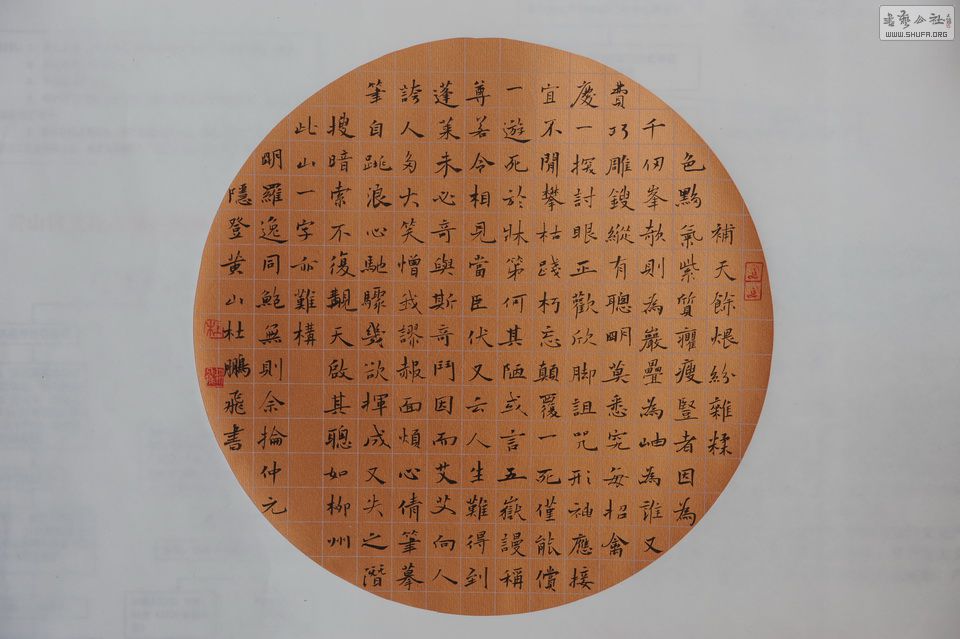 補天餘煨紛雜糅
色黟氣紫質癯瘦豎者因為
千仞峯欹則為巖疊為岫為誰又
費巧雕鎪縱有聰明莫悉究每招禽
慶一探討眼正歡欣脚詛咒形神應接
宜不閒攀枯踐朽忘顛覆一死僅能償
一遊死於牀第何其陋或言五嶽謾稱
尊若令相見當臣伏又云人生難得到
蓬萊未必奇與斯奇鬥因而艾艾向人
誇人多大笑憎我謬赧面煩心倩筆摹
筆自跳浪心馳驟幾欲揮成又失之潛
搜暗索不復覯天啟其聰如柳州
此山一字亦難構
明羅逸同鮑無則余掄仲元
隱登黃山杜鵬飛書
書藝公社
WWW.SHUFA.ORG